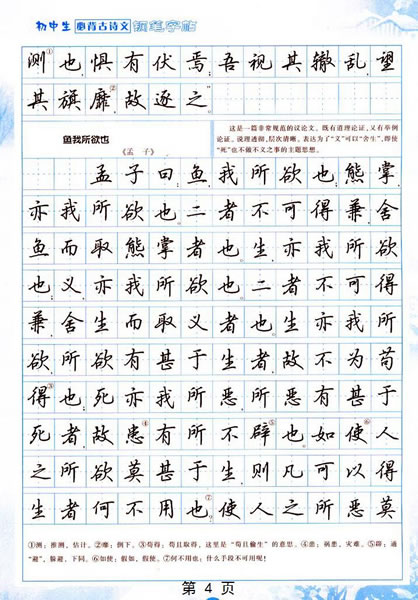 初中生 必背古诗文 钢笔字帖
测①也,惧有伏焉;吾视其辙乱,望
其旗靡②,故逐之。”
鱼我所欲也
《孟子》
这是一篇非常规范的议论文。既有道理论证,又有举例
论证。说理透彻,层次清晰。表达为了“义”可以“舍生”,即使
“死”也不做不义之事的主题思想。
孟子曰:鱼,我所欲也;熊掌,
亦我所欲也。二者不可得兼,舍
鱼而取熊掌者也。生,亦我所欲
也;义,亦我所欲也。二者不可得
兼,舍生而取义者也。生亦我所
欲,所欲有甚于生者,故不为苟
得③也。死亦我所恶,所恶有甚于
死者,故患④有所不辟⑤也。如使⑥人
之所欲莫甚于生,则凡可以得
生者何不用也⑦。使人之所恶莫
①测:推测,估计。②靡:倒下。③苟得:苟且取得,这里是“苟且偷生”的意思。④患:祸患,灾难。⑤辟:通
“避”,躲避。下同。⑥如使:假如,假使。⑦何不用也:什么手段不可用呢!
第 4 页